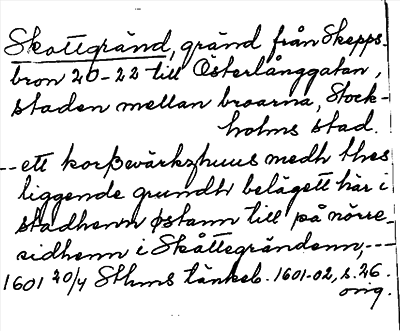 Skottgränd, gränd från Skepps-
bron 20-22 till Österlånggatan,
staden mellan broarna, Stock-
holms stad.
--ett korßwärkzhuus medh thes
liggende grundh belägett här i
stadhenn østann till på nörre-
sidhenn i Skåttegrändenn,---
1601 20/4 Sthms tänkeb. 1601-02, s. 26.
orig.